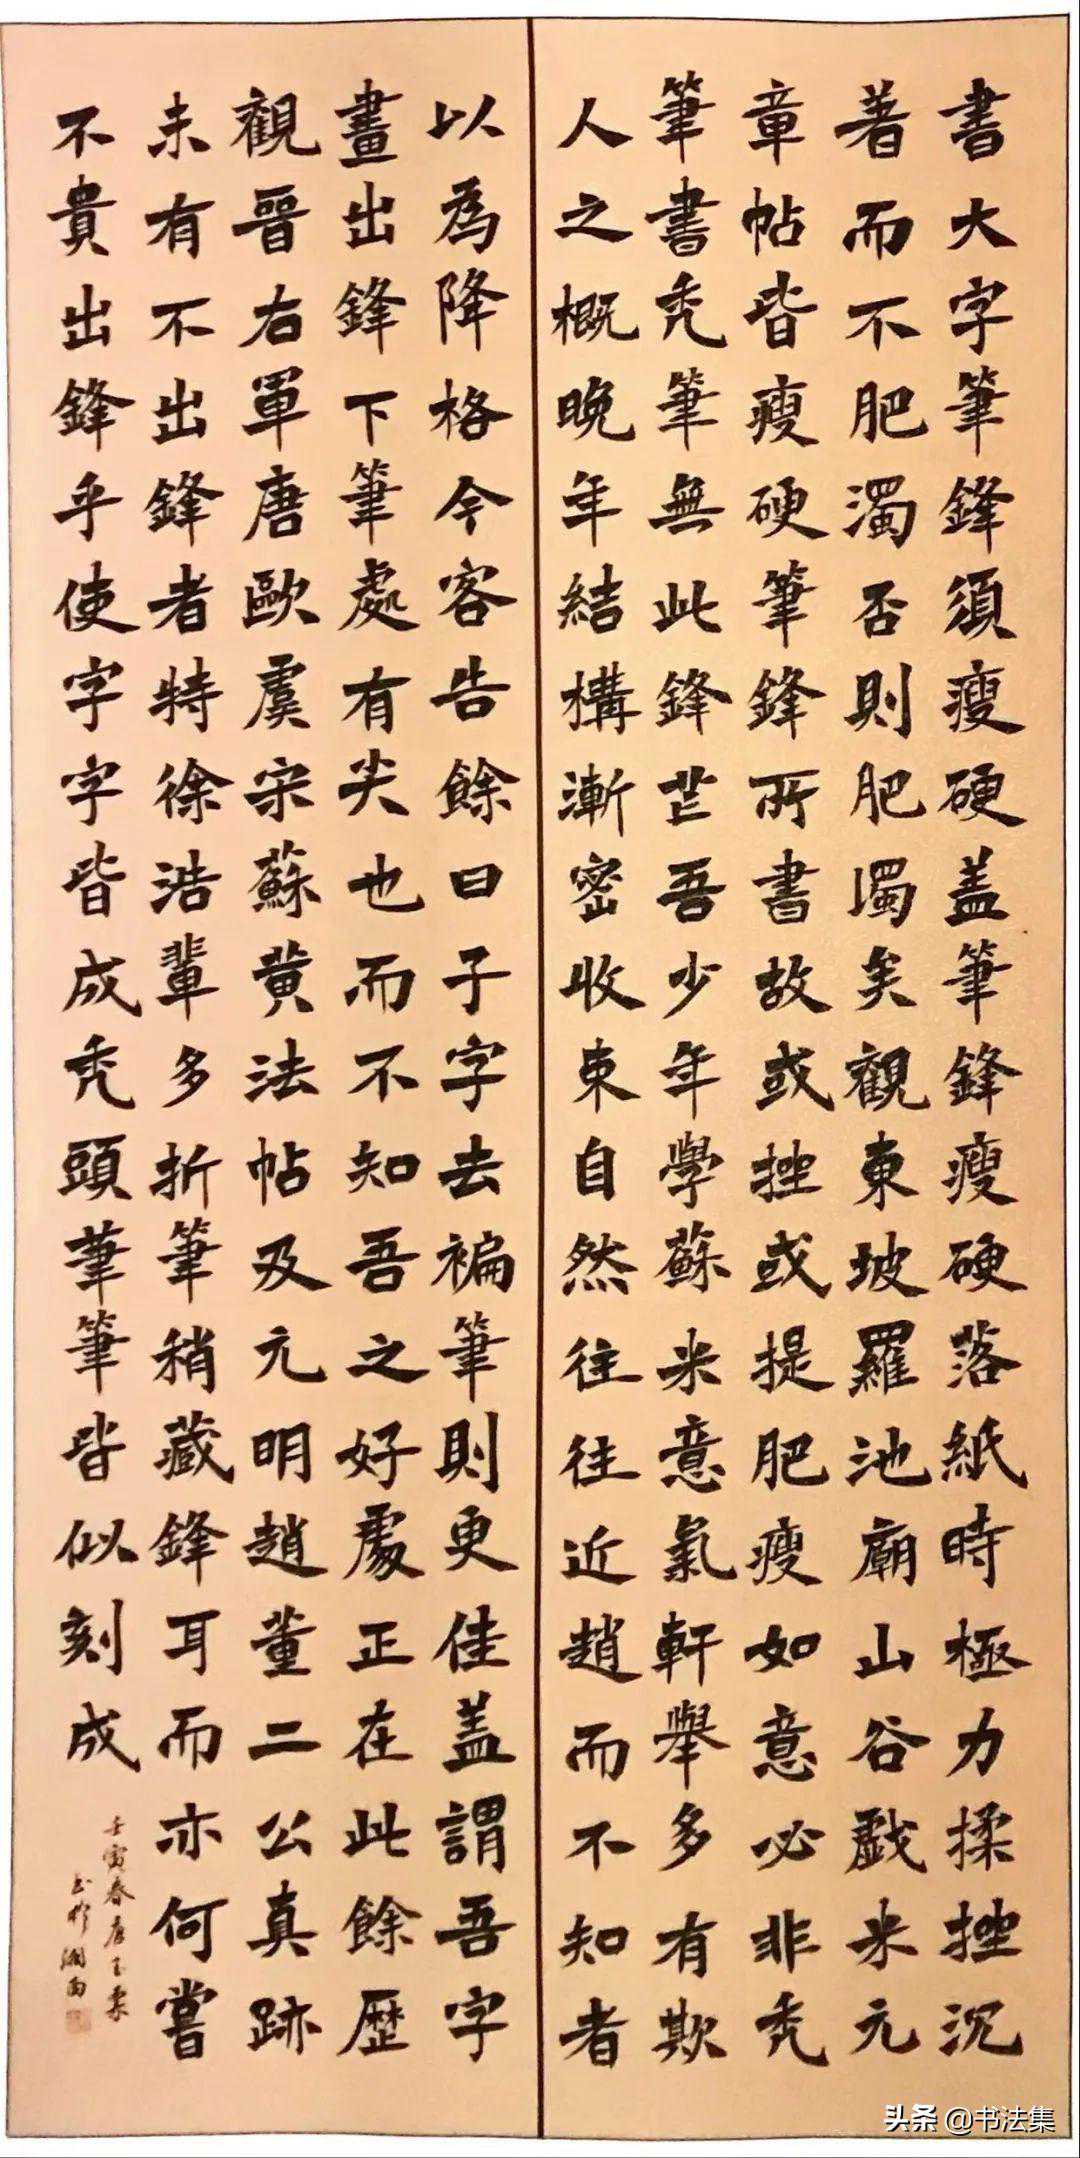 書大字筆鋒須瘦硬盖筆鋒瘦硬落紙時極力揉挫沉
著而不肥濁否則肥濁矣觀東坡羅池廟山谷戲米元
章帖皆瘦硬筆鋒所書故或挫或提肥瘦如意必非禿
筆書禿筆無此鋒芒吾少年學蘇米意氣軒舉多有欺
人之概晚年結構漸密收束自然往往近趙而不知者
以為降格今客告餘曰子字去褊筆則更佳盖謂吾字
畫出鋒下筆處有尖也而不知吾之好處正在此餘歷
觀晉右軍唐歐虞宋蘇黄法帖及元明趙董二公真跡
未有不出鋒者特徐浩輩多折筆稍藏鋒耳而亦何嘗
不貴出鋒乎使字字皆成禿頭筆筆皆似刻成
壬寅春
头条 @书法集